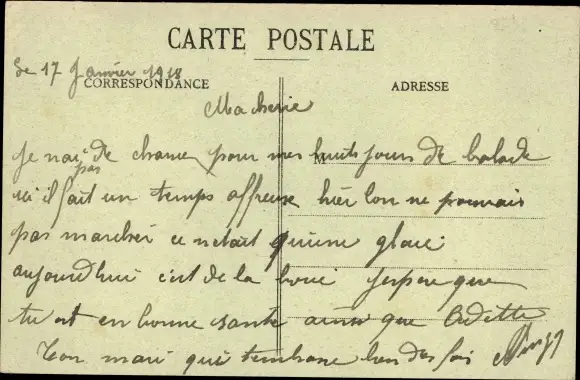 CARTE POSTALE
Le 17 Janvier 1918
CORRESPONDANCE
ADRESSE
Ma cherie
Je nai pas de chance pour mes huits jours de balade
ici il fait un temps affreuse hier lon ne pouvais
pas marcher ce netait quune glace
aujourdhui c'est de la boue jespere que
tu est en bonne santé ainsi que Odette
Ton mari qui tembrasse bien des fois
M